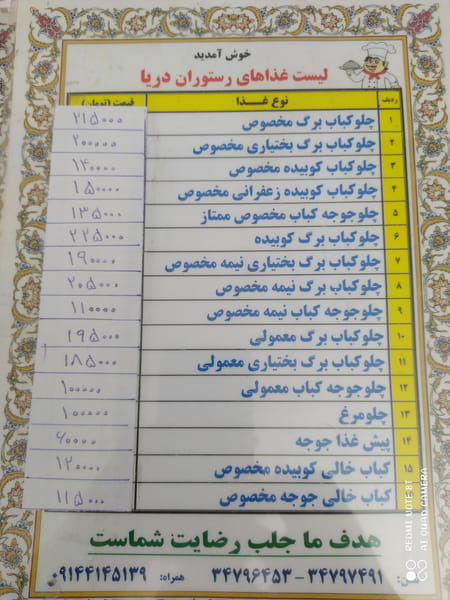 خوش آمدید
لیست غذاهای رستوران دریا
ردیف نوع غذا قیمت (تومان)
۱ چلوکباب برگ مخصوص ۲۱۵۰۰۰
۲ چلوکباب برگ بختیاری مخصوص ۲۰۰۰۰۰
۳ چلوکباب کوبیده مخصوص ۱۴۰۰۰۰
۴ چلوکباب کوبیده زعفرانی مخصوص ۱۵۰۰۰۰
۵ چلوجوجه کباب مخصوص ممتاز ۱۳۵۰۰۰
۶ چلوکباب برگ کوبیده ۲۲۵۰۰۰
۷ چلوکباب برگ بختیاری نیمه مخصوص ۱۹۰۰۰۰
۸ چلوکباب برگ نیمه مخصوص ۲۰۵۰۰۰
۹ چلوجوجه کباب نیمه مخصوص ۱۱۰۰۰۰
۱۰ چلوکباب برگ معمولی ۱۹۵۰۰۰
۱۱ چلوکباب برگ بختیاری معمولی ۱۸۵۰۰۰
۱۲ چلوجوجه کباب معمولی ۱۰۰۰۰۰
۱۳ چلومرغ ۱۰۰۰۰۰
۱۴ پیش غذا جوجه ۶۰۰۰۰
۱۵ کباب خالی کوبیده مخصوص ۱۲۰۰۰۰
کباب خالی جوجه مخصوص ۱۱۵۰۰۰
هدف ما جلب رضایت شماست
تلفن: ۳۴۷۹۷۴۹۱ - ۳۴۷۹۶۴۵۳ همراه: ۰۹۱۴۴۱۴۵۱۳۹
REDMI NOTE 8T
AI QUAD CAMERA